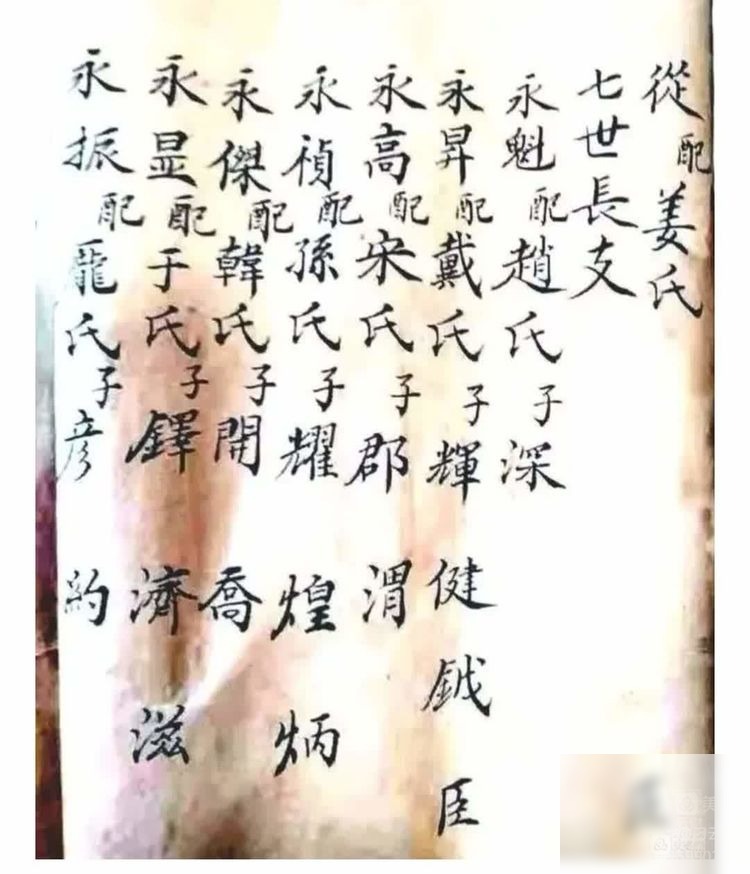 從配姜氏
七世長支
永魁配趙氏子深
永昇配戴氏子輝 健 鉞 臣
永高配宋氏子郡 渭
永禎配孫氏子耀 煌 炳
永傑配韓氏子開 喬
永显配于氏子鐸 濟 滋
永振配龐氏子彦 約